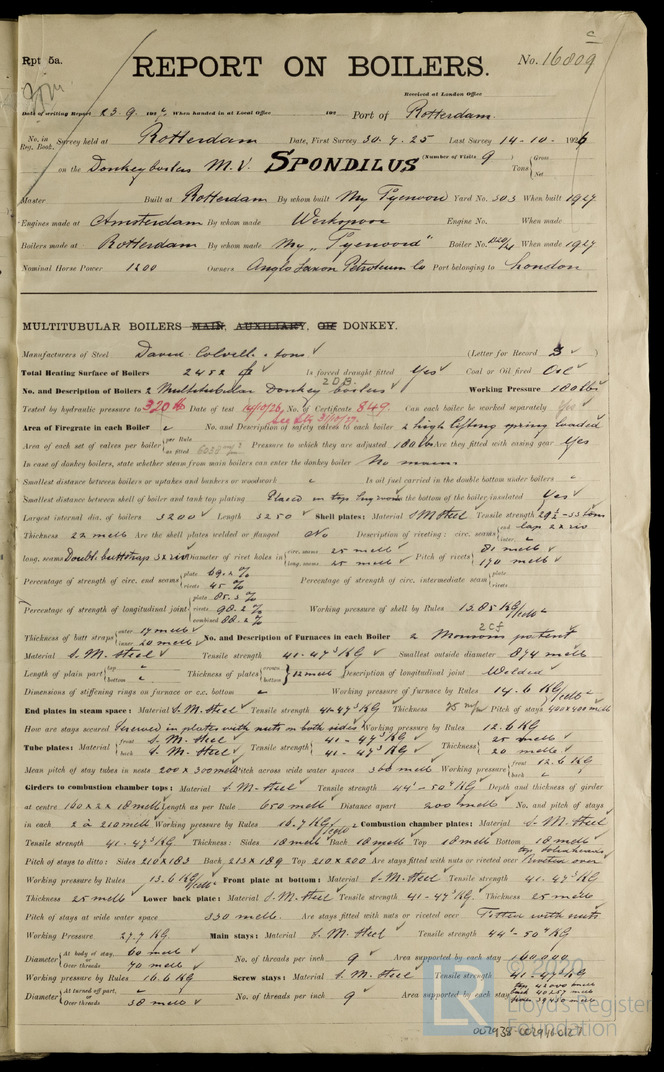 c
Rpt 5a.
REPORT ON BOILERS.
No. 16809
Received at London Office
Date of writing Report 23.9. 192 When handed in at Local Office 192 Port of Rotterdam.
No. in Reg. Book. Survey held at Rotterdam Date, First Survey 30.7.25 Last Survey 14-10-1926
on the Donkey boilers M.V. SPONDILUS (Number of Visits 9) Tons {Gross Net
Master Built at Rotterdam By whom built Yard No. 303 When built 1927
Engines made at Amsterdam By whom made Werkspoor Engine No. When made
Boilers made at Rotterdam By whom made Boiler No. When made 1927
Nominal Horse Power 1200 Owners Anglo Saxon Petroleum Co Port belonging to London
MULTITUBULAR BOILERS MAIN, AUXILIARY, OR DONKEY.
Manufacturers of Steel David Colvill & sons (Letter for Record S)
Total Heating Surface of Boilers 2452 Is forced draught fitted Yes Coal or Oil fired Oil
2 D.B.
No. and Description of Boilers 2 Multitubular Donkey boilers Working Pressure 180 lbs
Tested by hydraulic pressure to 320 lb Date of test 14/10/26 No. of Certificate 849. Can each boiler be worked separately Yes
Area of Firegrate in each Boiler No. and Description of safety valves to each boiler 2 high lifting spring loaded
Area of each set of valves per boiler {per Rule as fitted Pressure to which they are adjusted 180 lbs Are they fitted with easing gear Yes
In case of donkey boilers, state whether steam from main boilers can enter the donkey boiler No mains
Smallest distance between boilers or uptakes and bunkers or woodwork Is oil fuel carried in the double bottom under boilers
Smallest distance between shell of boiler and tank top plating Placed on top Is the bottom of the boiler insulated Yes
Largest internal dia. of boilers 3200 Length 3250 Shell plates: Material S M Steel Tensile strength 29½-33 tons
Thickness 22 m Are the shell plates welded or flanged No Description of riveting: circ. seams {end lap 2 x riv inter.
long. seams Double buttstraps 3 x riv Diameter of rivet holes in {circ. seams 25 long. seams 25 Pitch of rivets {81 170
Percentage of strength of circ. end seams {plate 69.2 % rivets 45 % Percentage of strength of circ. intermediate seam {plate rivets
Percentage of strength of longitudinal joint {plate 85.3 % rivets 90.2 % combined 88.2 % Working pressure of shell by Rules 13.85 KG/
Thickness of butt straps {outer 17 inner 20 No. and Description of Furnaces in each Boiler 2 Morison patent
2 C.f
Material S. M. Steel Tensile strength 41-47³ KG Smallest outside diameter 874
Length of plain part {top bottom Thickness of plates {crown bottom 12 Description of longitudinal joint Welded
Dimensions of stiffening rings on furnace or c.c. bottom Working pressure of furnace by Rules 14.6 KG/
End plates in steam space: Material S. M. Steel Tensile strength 41-47³ KG Thickness 25 m/m Pitch of stays 400x400
How are stays secured Screwed in plates with nuts on both sides Working pressure by Rules 12.6 KG
Tube plates: Material {front S. M. Steel back S. M. Steel Tensile strength {41-47³ KG 41-47³ KG Thickness {25 20
Mean pitch of stay tubes in nests 200 x 300 Pitch across wide water spaces 360 Working pressure {front 12.6 KG back
Girders to combustion chamber tops: Material S. M. Steel Tensile strength 44¹-50⁴ KG Depth and thickness of girder
at centre 160x2x18 Length as per Rule 650 Distance apart 200 No. and pitch of stays
in each 2 a 210 Working pressure by Rules 18.7 KG/ Combustion chamber plates: Material S. M. Steel
Tensile strength 41-47³ KG Thickness: Sides 18 Back 18 Top 18 Bottom 18
Pitch of stays to ditto: Sides 210x183 Back 213x189 Top 210x200 Are stays fitted with nuts or riveted over Riveted over
Working pressure by Rules 13.6 KG/ Front plate at bottom: Material S. M. Steel Tensile strength 41-47³ KG
Thickness 25 Lower back plate: Material S. M. Steel Tensile strength 41-47³ KG Thickness 25
Pitch of stays at wide water space 330 Are stays fitted with nuts or riveted over Fitted with nuts
Working Pressure 27.7 KG Main stays: Material S. M. Steel Tensile strength 44¹-50⁴ KG
Diameter {At body of stay, 60 or Over threads 70 No. of threads per inch 9 Area supported by each stay 160,000
Working pressure by Rules 16.6 KG Screw stays: Material S. M. Steel Tensile strength 41-47³ KG
Diameter {At turned off part, or Over threads 38 No. of threads per inch 9 Area supported by each stay top 42000 back 40257 sides 39430
© 2020
LR
Lloyd's Register
Foundation
002938-002946-0127